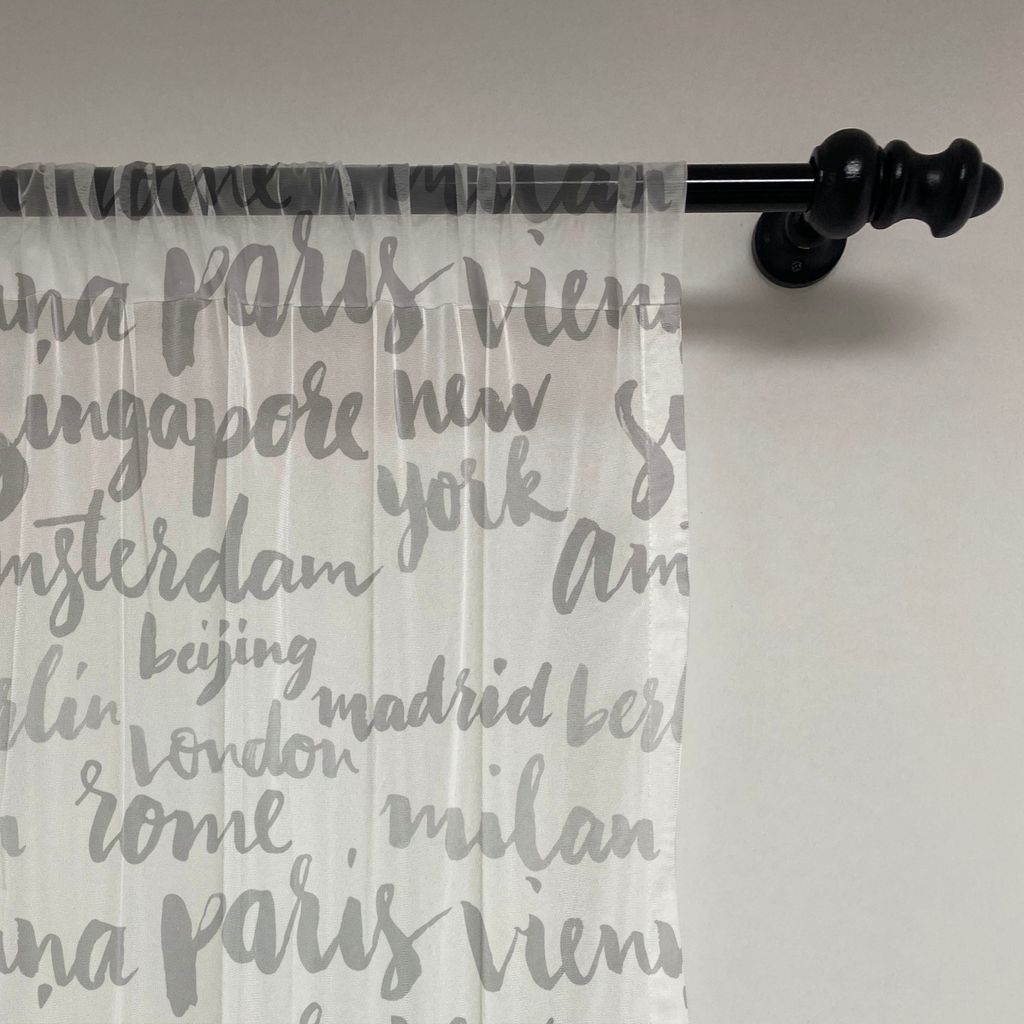 rome milan
nna paris vienn
singapore new
york
amsterdam am
beijing
rlin madrid berl
london
rome milan
nna paris vienn